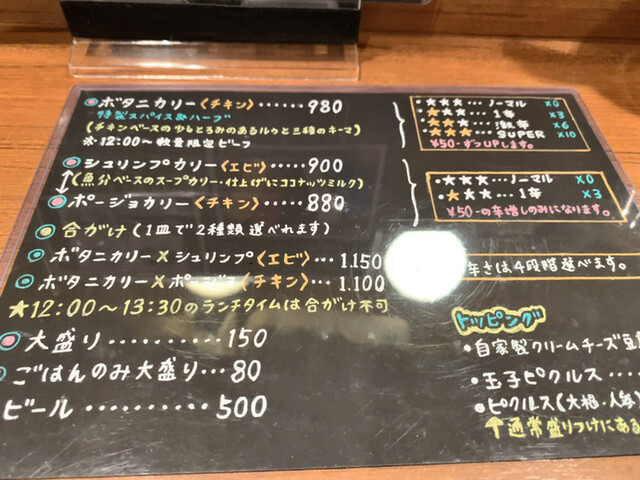 ボタニカリー〈チキン〉……980
特製スパイス&ハーブ
(チキンベースの少しとろみのあるルウと三種のキーマ)
※12:00〜数量限定ビーフ
シュリンプカリー〈エビ〉……900
(魚介ベースのスープカリー・仕上げにココナッツミルク)
ポージョカリー〈チキン〉……880
合がけ(1皿で2種類選べれます)
ボタニカリー×シュリンプ〈エビ〉…1.150
ボタニカリー×ポージョ〈チキン〉…1.100
★12:00〜13:30のランチタイムは合がけ不可
大盛り..........150
ごはんのみ大盛り...80
ビール..........500
・★★★...ノーマル ×0
・★★★... 1辛 ×3
・★★★... 激辛 ×6
・★★★... SUPER ×10
¥50-ずつUPします。
・★★★...ノーマル ×0
・★★★... 1辛 ×3
¥50-の辛増しのみになります。
辛さは4段階選べます。
トッピング
・自家製クリームチーズ豆
・玉子ピクルス....
・ピクルス(大根・人参)
↑通常盛りつけにある